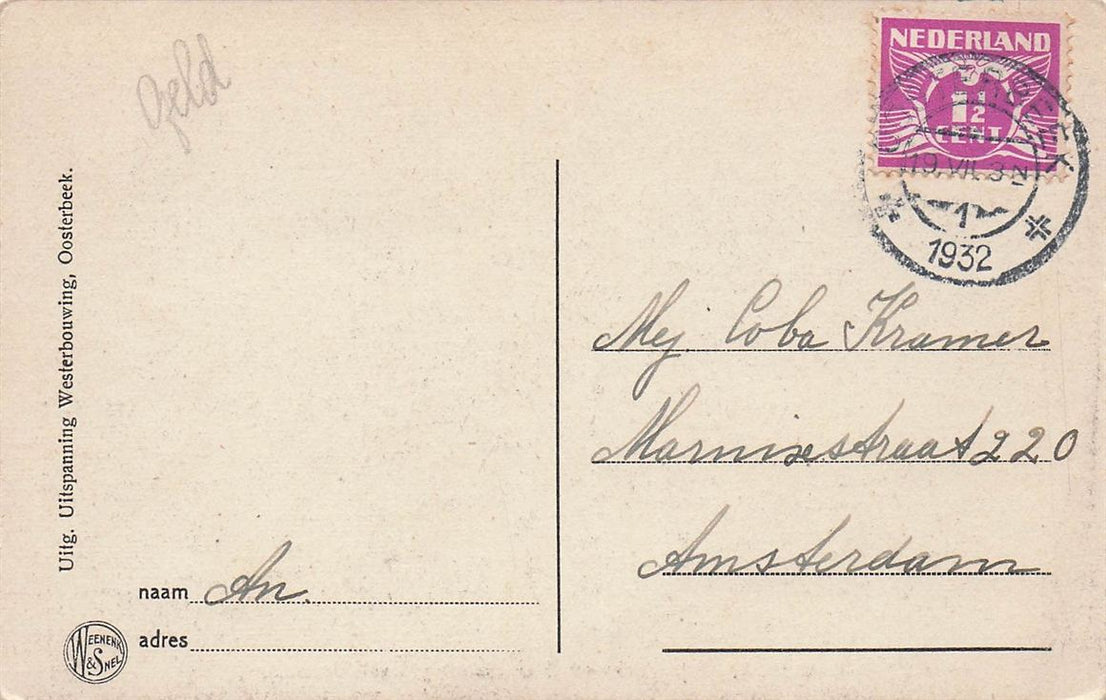 Geld
Uitg. Uitspanning Westerbouwing, Oosterbeek.
naam An.
adres
WEENENK
& SNEL
NEDERLAND
1½
CENT
19.VII.32
1
1932
Mej Coba Kramer
Marnixstraat 220
Amsterdam